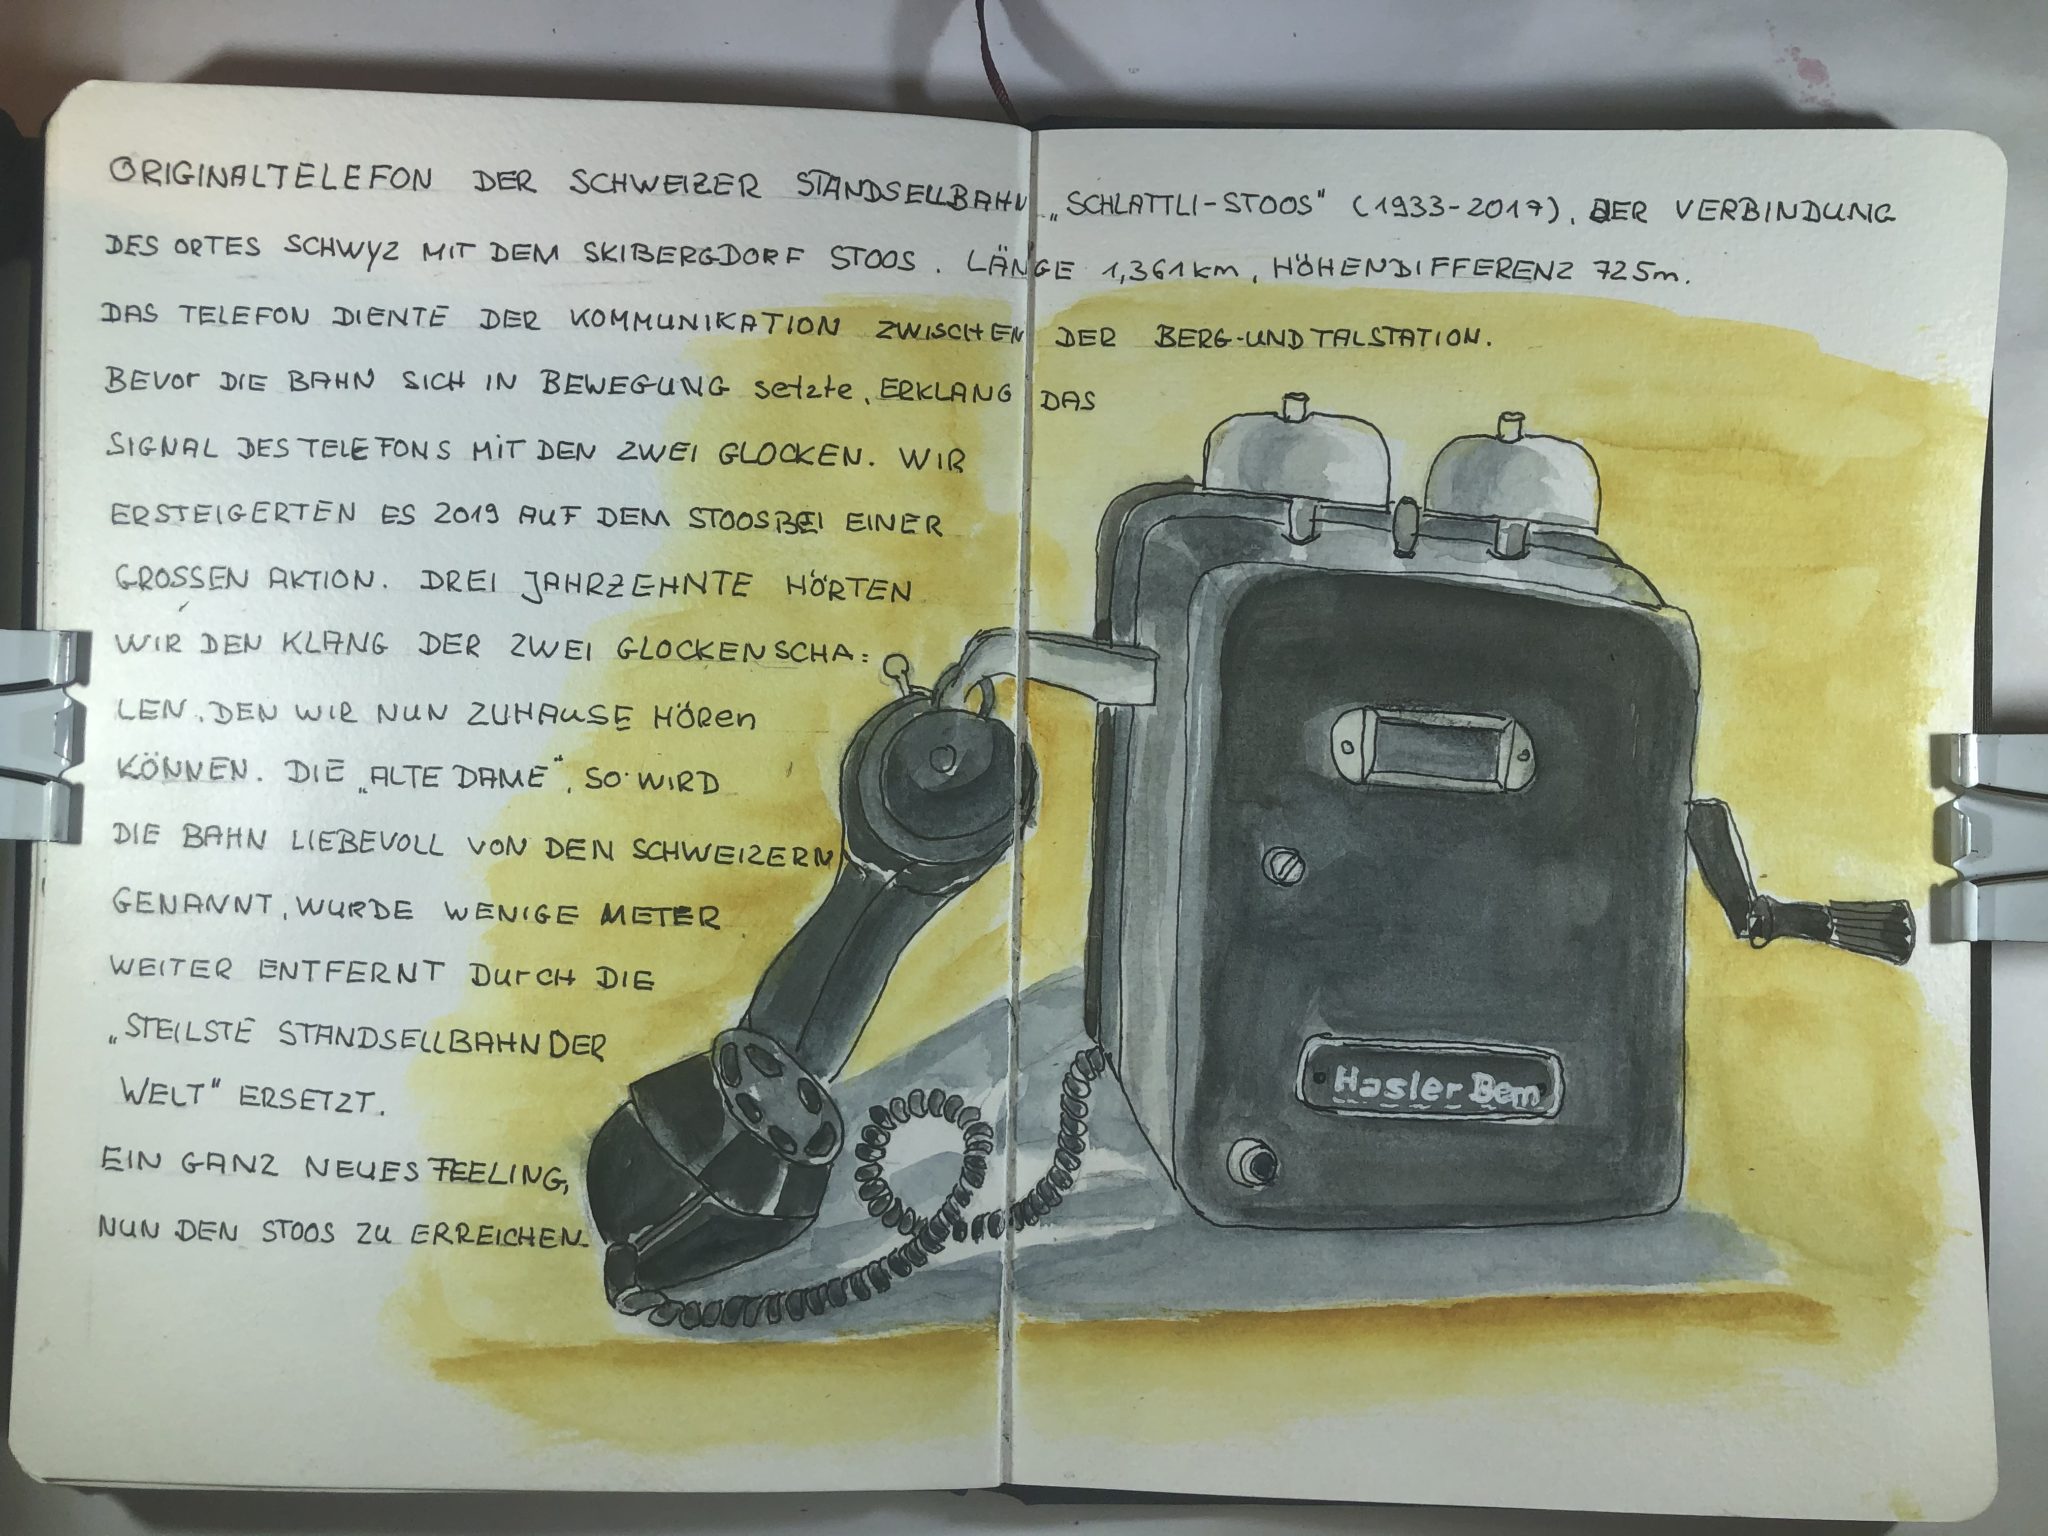 ORIGINALTELEFON DER SCHWEIZER STANDSELLBAHN „SCHLATTLI-STOOS" (1933-2017), DER VERBINDUNG
DES ORTES SCHWYZ MIT DEM SKIBERGDORF STOOS. LÄNGE 1,361km, HÖHENDIFFERENZ 725m.
DAS TELEFON DIENTE DER KOMMUNIKATION ZWISCHEN DER BERG-UND TALSTATION.
BEVOr DIE BAHN SICH IN BEWEGUNG setzte, ERKLANG DAS
SIGNAL DES TELEFONS MiT DEN ZWEI GLOCKEN. WIR
ERSTEIGERTEN ES 2019 AUF DEM STOOS BEI EINER
GROSSEN AKTION. DREI JAHRZEHNTE HÖRTEN
WIR DEN KLANG DER ZWEI GLOCKENSCHA=
LEN, DEN WIR NUN ZUHAUSE HÖRen
KÖNNEN. DIE „ALTE DAME", SO WIRD
DIE BAHN LIEBEVOLL VON DEN SCHWEIZERN
GENANNT, WURDE WENIGE METER
WEITER ENTFERNT DUrCH DIE
„STEILSTE STANDSELLBAHN DER
WELT" ERSETZT.
EIN GANZ NEUES FEELING,
NUN DEN STOOS ZU ERREICHEN.
Hasler Bern